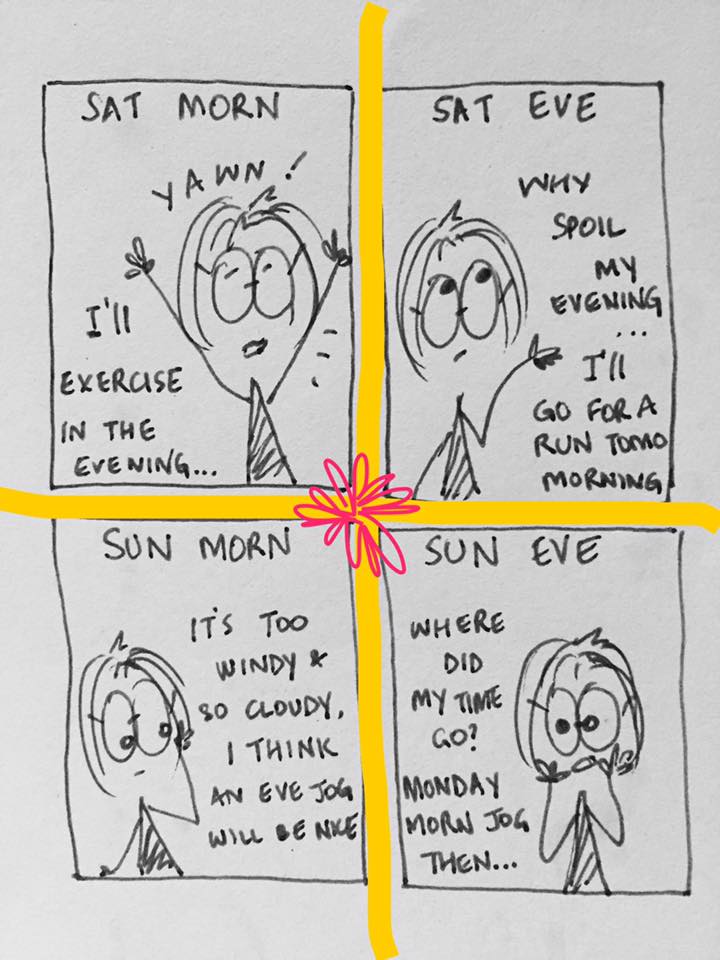 SAT MORN
YAWN!
I'll
EXERCISE
IN THE
EVENING...
SAT EVE
WHY
SPOIL
MY
EVENING
...
I'll
GO FOR A
RUN TOMO
MORNING
SUN MORN
IT'S TOO
WINDY &
SO CLOUDY,
I THINK
AN EVE JOG
WILL BE NICE
SUN EVE
WHERE
DID
MY TIME
GO?
MONDAY
MORN JOG
THEN...